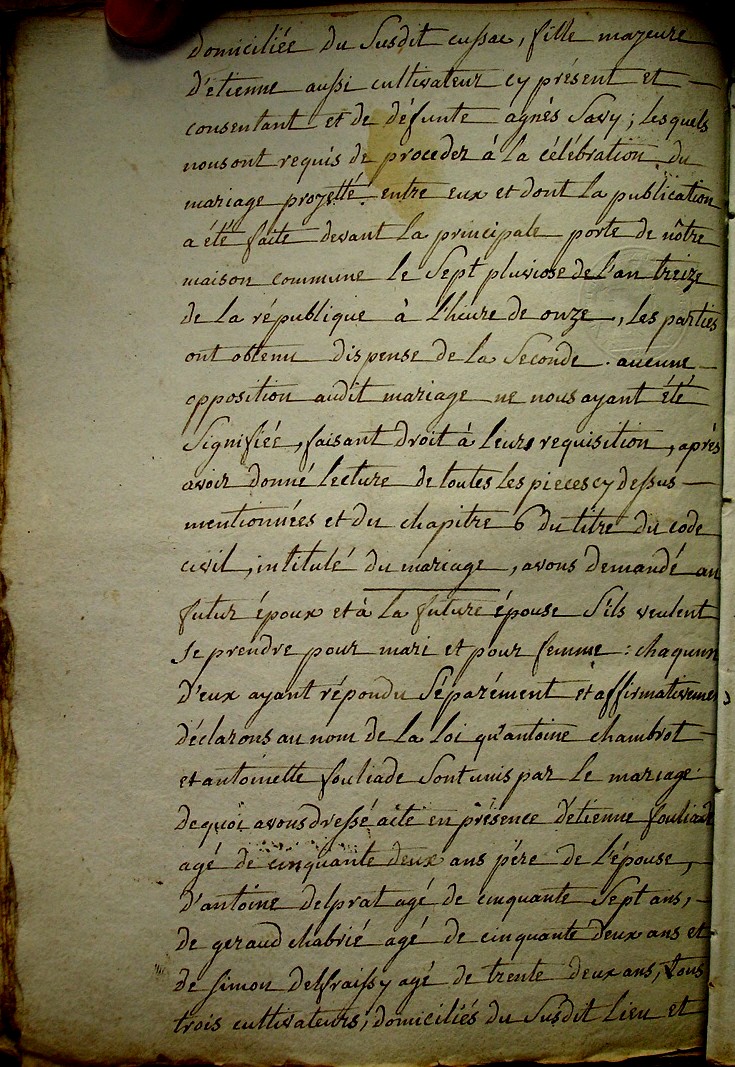 domiciliée du susdit cussac, fille majeure
d'etienne aussi cultivateur cy présent et
consentant et de défunte agnès Savy; lesquels
nous ont requis de proceder à la célébration du
mariage projetté entre eux et dont la publication
a été faite devant la principale porte de nôtre
maison commune le Sept pluviose de l'an treize
de la république à l'heure de onze, les parties
ont obtenu dispense de la Seconde. aucune
opposition audit mariage ne nous ayant été
Signifiée, faisant droit à leurs requisition, après
avoir donné lecture de toutes les pieces cy dessus
mentionnées et du chapitre 6 du titre du code
civil, intitulé du mariage, avons demandé au
futur époux et à la future épouse S'ils veulent
se prendre pour mari et pour femme: chaqunn
d'eux ayant répondu Séparément et affirmativemen
déclarons au nom de la loi qu'antoine chambrot
et antoinette fouliade Sont unis par le mariage.
de quoi avons dressé acte en présence d'etienne fouliade
agé de cinquante deux ans père de l'épouse,
d'antoine delprat agé de cinquante Sept ans,
de geraud chabrié agé de cinquante deux ans et
de simon delfraissy agé de trente deux ans, tous
trois cultivateurs, domiciliés du Susdit lieu et